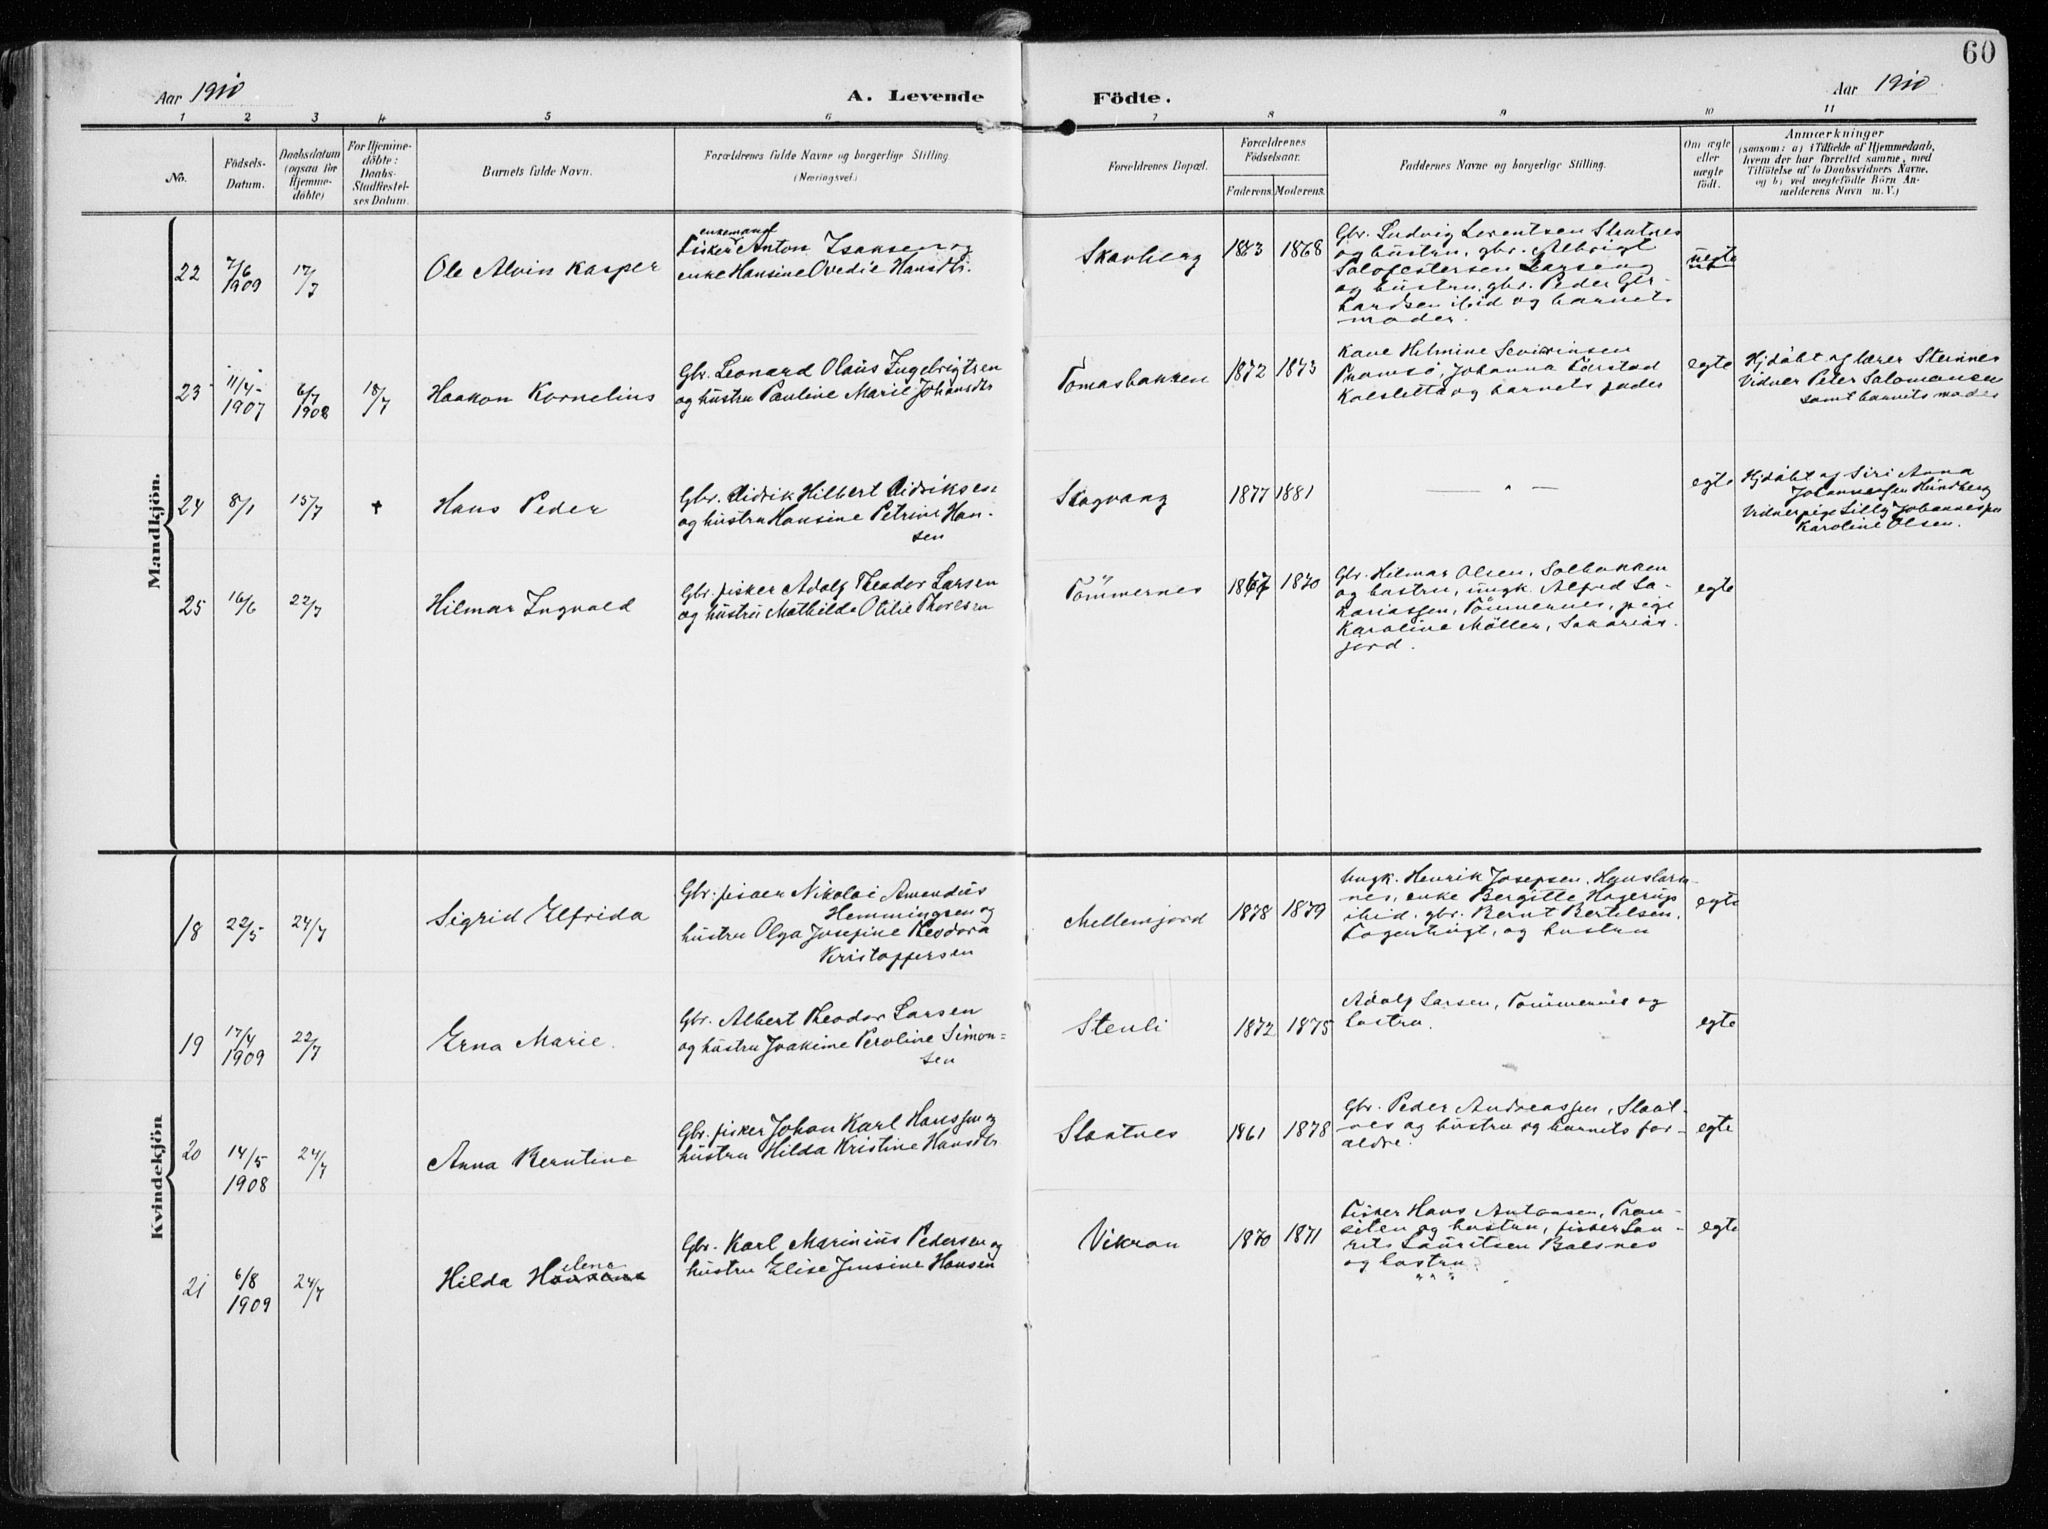 60
Aar 1910
A. Levende Födte.
Aar 1910
1 2 3 4 5 6 7 8 9 10 11
No.
Födsels-
Datum.
Daabsdatum
(ogsaa for
Hjemme-
döbte)
For Hjemme-
döbte:
Daabs-
Stadfæstel-
ses Datum.
Barnets fulde Navn.
Forældrenes fulde Navne og borgerlige Stilling.
(Næringsvei.)
Forældrenes Bopæl.
Forældrenes
Födselsaar.
Faderens. Moderens.
Faddernes Navne og borgerlige Stilling.
Om ægte
eller
uægte
födt.
Anmærkninger
(saasom: a) i Tilfælde af Hjemmedaab,
hvem der har forrettet samme, med
Tilföielse af to Daabsvidners Navne,
og b) ved uægtefödte Börn An-
melderens Navn m. V.)
Mandkjön.
22
7/6
1909
17/7
Ole Alvin Kasper
enkemand
Fisker Anton Isaksen og
enke Hansine Ovedie Hansdtr.
Skavberg
1863 1868
Gbr. Ludvig Lorentsen Slatnes
og hustru, gbr. Albrigt
Larsen
og hustru, gbr. Peder Ger-
hardsen ibid og barnets
moder.
uegte
23
11/4
1907
6/7
1908
18/7
Haakon Kornelius
Gbr. Leonard Olaus Ingebrigtsen
og hustru Pauline Marie Johansdtr
Tomasbakken
1872 1873
Kone Hilmine Severinsen
Tromsö, Johanna Forstad
Kalsletta og barnets fader
egte
Hjdöbt af lærer Steinnes
Vidner Peter Salomonsen
samt barnets moder
24
8/1
15/7
+
Hans Peder
Gbr. Didrik Hilbert Didriksen
og hustru Hansine Petrine Han-
sen
Skogvang
1877 1881
— " —
egte
Hjdöbt af Siri Anna
Johannessen Hundberg
Vidner pige Lilly Johannessen
Karoline Olsen.
25
16/6
22/7
Hilmar Ingvald
Gbr. fisker Adolf Theodor Larsen
og hustru Mathilde Otilie Thoresen
Tömmernes
1867 1870
Gbr. Hilmar Olsen, Solbakken
og hustru, ungk. Alfred Sa-
kariassen, Tömmernes, pige
Karoline Möller, Sakarias-
jord.
egte
Kvindekjön
18
22/5
24/7
Sigrid Elfrida
Gbr. fisker Nikolai Amandus
Hemmingsen og
hustru Olga Josefine Theodora
Kristoffersen
Mellemjord
1878 1879
Ungk. Henrik Josefsen, Hanslarn-
nes, enke Bergitte Hagerup
ibid. gbr. Bernt Bertelsen,
Fagerhugt, og hustru
egte
19
17/4
1909
22/7
Erna Marie.
Gbr. Albert Theodor Larsen
og hustru Joakime Peroline Simon-
sen
Stenli
1872 1875
Adolf Larsen, Tömmernes og
hustru.
egte
20
14/5
1908
24/7
Anna Berntine
Gbr. fisker Johan Karl Hanssen og
hustru Hilda Kristine Hansdtr
Slaatnes
1861 1878
Gbr. Peder Andreassen, Slaat-
nes og hustru og barnets for-
ældre.
egte
21
6/8
1909
24/7
elene
Hilda Hansine
Gbr. Karl Marinius Pedersen og
hustru Elise Jensine Hansen
Vikran
1870 1871
Fisker Hans Antonsen, Tran-
siten og hustru, fisker Lau-
rits Lauritsen Balsnes
og hustru.
" " "
egte